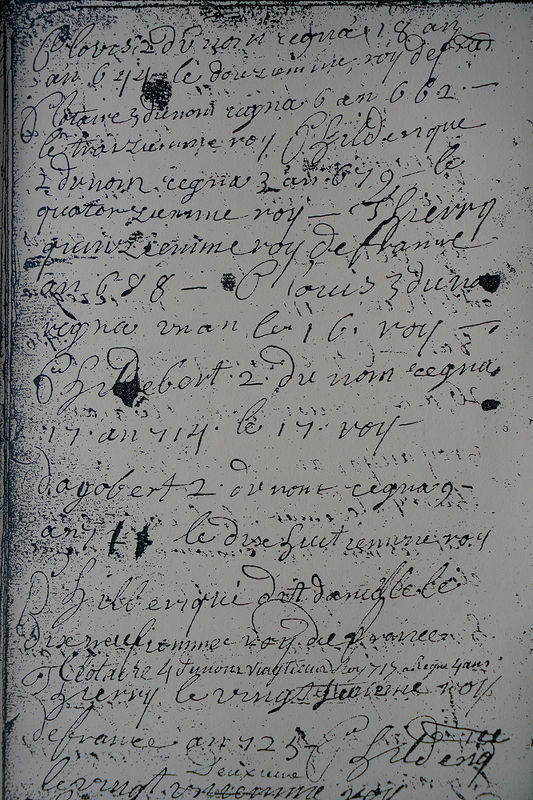 Clovis 2 du nom regna 18 an
an 644 le douziemme roy de france
Clotaire 3 du nom regna 6 an 662 —
le traiziemme roy Childerique
2 du nom regna 3 an 679 — le
quatorziemme roy — Thierry
quinziemme roy de france
an 688 — Clouis 3 du no
regna un an le 16. roy —
Childebert 2 du nom regna
17 an 714 le 17 roy —
dagobert 2 du nom regna
an le dix huit iemme roy
Chilberique dit daniel le
dix neufiemme roy de france
Clotaire 4 du nom roy 717 a Regne 4 ans
Thierry le vingt roy
de france an 725
le vingt Deuxieme roy